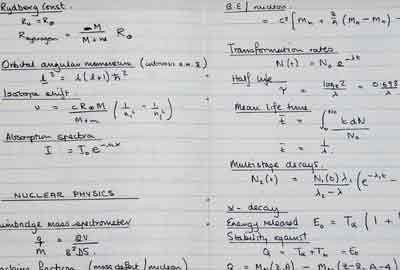 Rydberg Const.
R∞ = R∞
R hydrogen = M / M+m R∞
Orbital angular momentum
l² = l(l+1)ħ²
Isotope shift.
υ = cR∞M / M+m (1/n₁² - 1/n₂²)
Absorption spectra
I = I₀e
NUCLEAR PHYSICS
mass spectrometer
q/m =
fraction (mass defect / nucleon)
B.E / nucleon
= c² [Mn + Z/A (MH - Mn) -
Transformation rates
N(t) = N₀ e^-λt
Half life
τ = loge2 / λ = 0.693 / λ
Mean life time
t̄ = ∫ t dN / N₀
t̄ = 1/λ
Multistage decays.
N₂(t) = N₁(0) λ₁ / λ₂ - λ₁ (e^-λ₁t -
α - decay
Energy released E₀ = Tα (1 +
Stability against
Q = Tα + Tb = E₀
Q = (Z,A) - (Z-2, A-4)